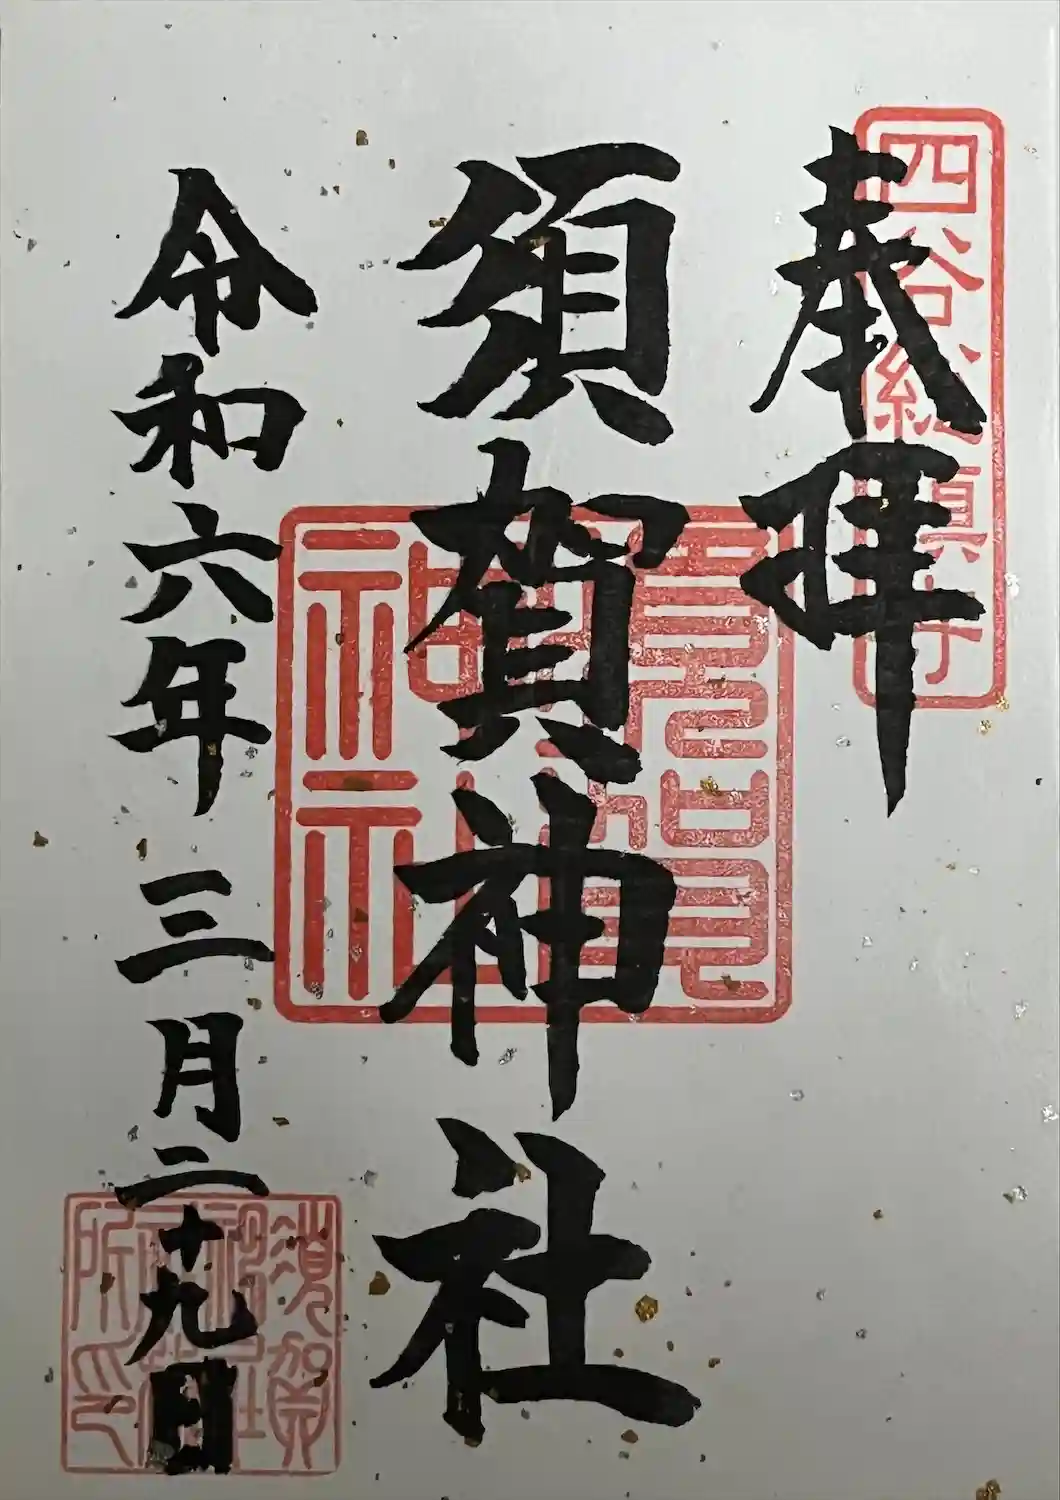 四谷總鎮守
奉拝
須賀神社
須賀神社
令和六年三月二十九日
須賀神社社務所印